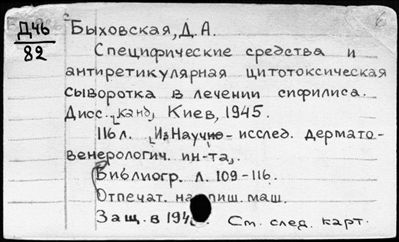 Д46
82
Быховская, Д. А.
Специфические средства и
антиретикулярная цитотоксическая
сыворотка в лечении сифилиса.
Дисс. канд. Киев, 1945.
116 л. Из Научно-исслед. дермато-
венерологич. ин-та.
Библиогр. л. 109-116.
Отпечат. на пиш. маш.
Защ. в 194
См. след. карт.